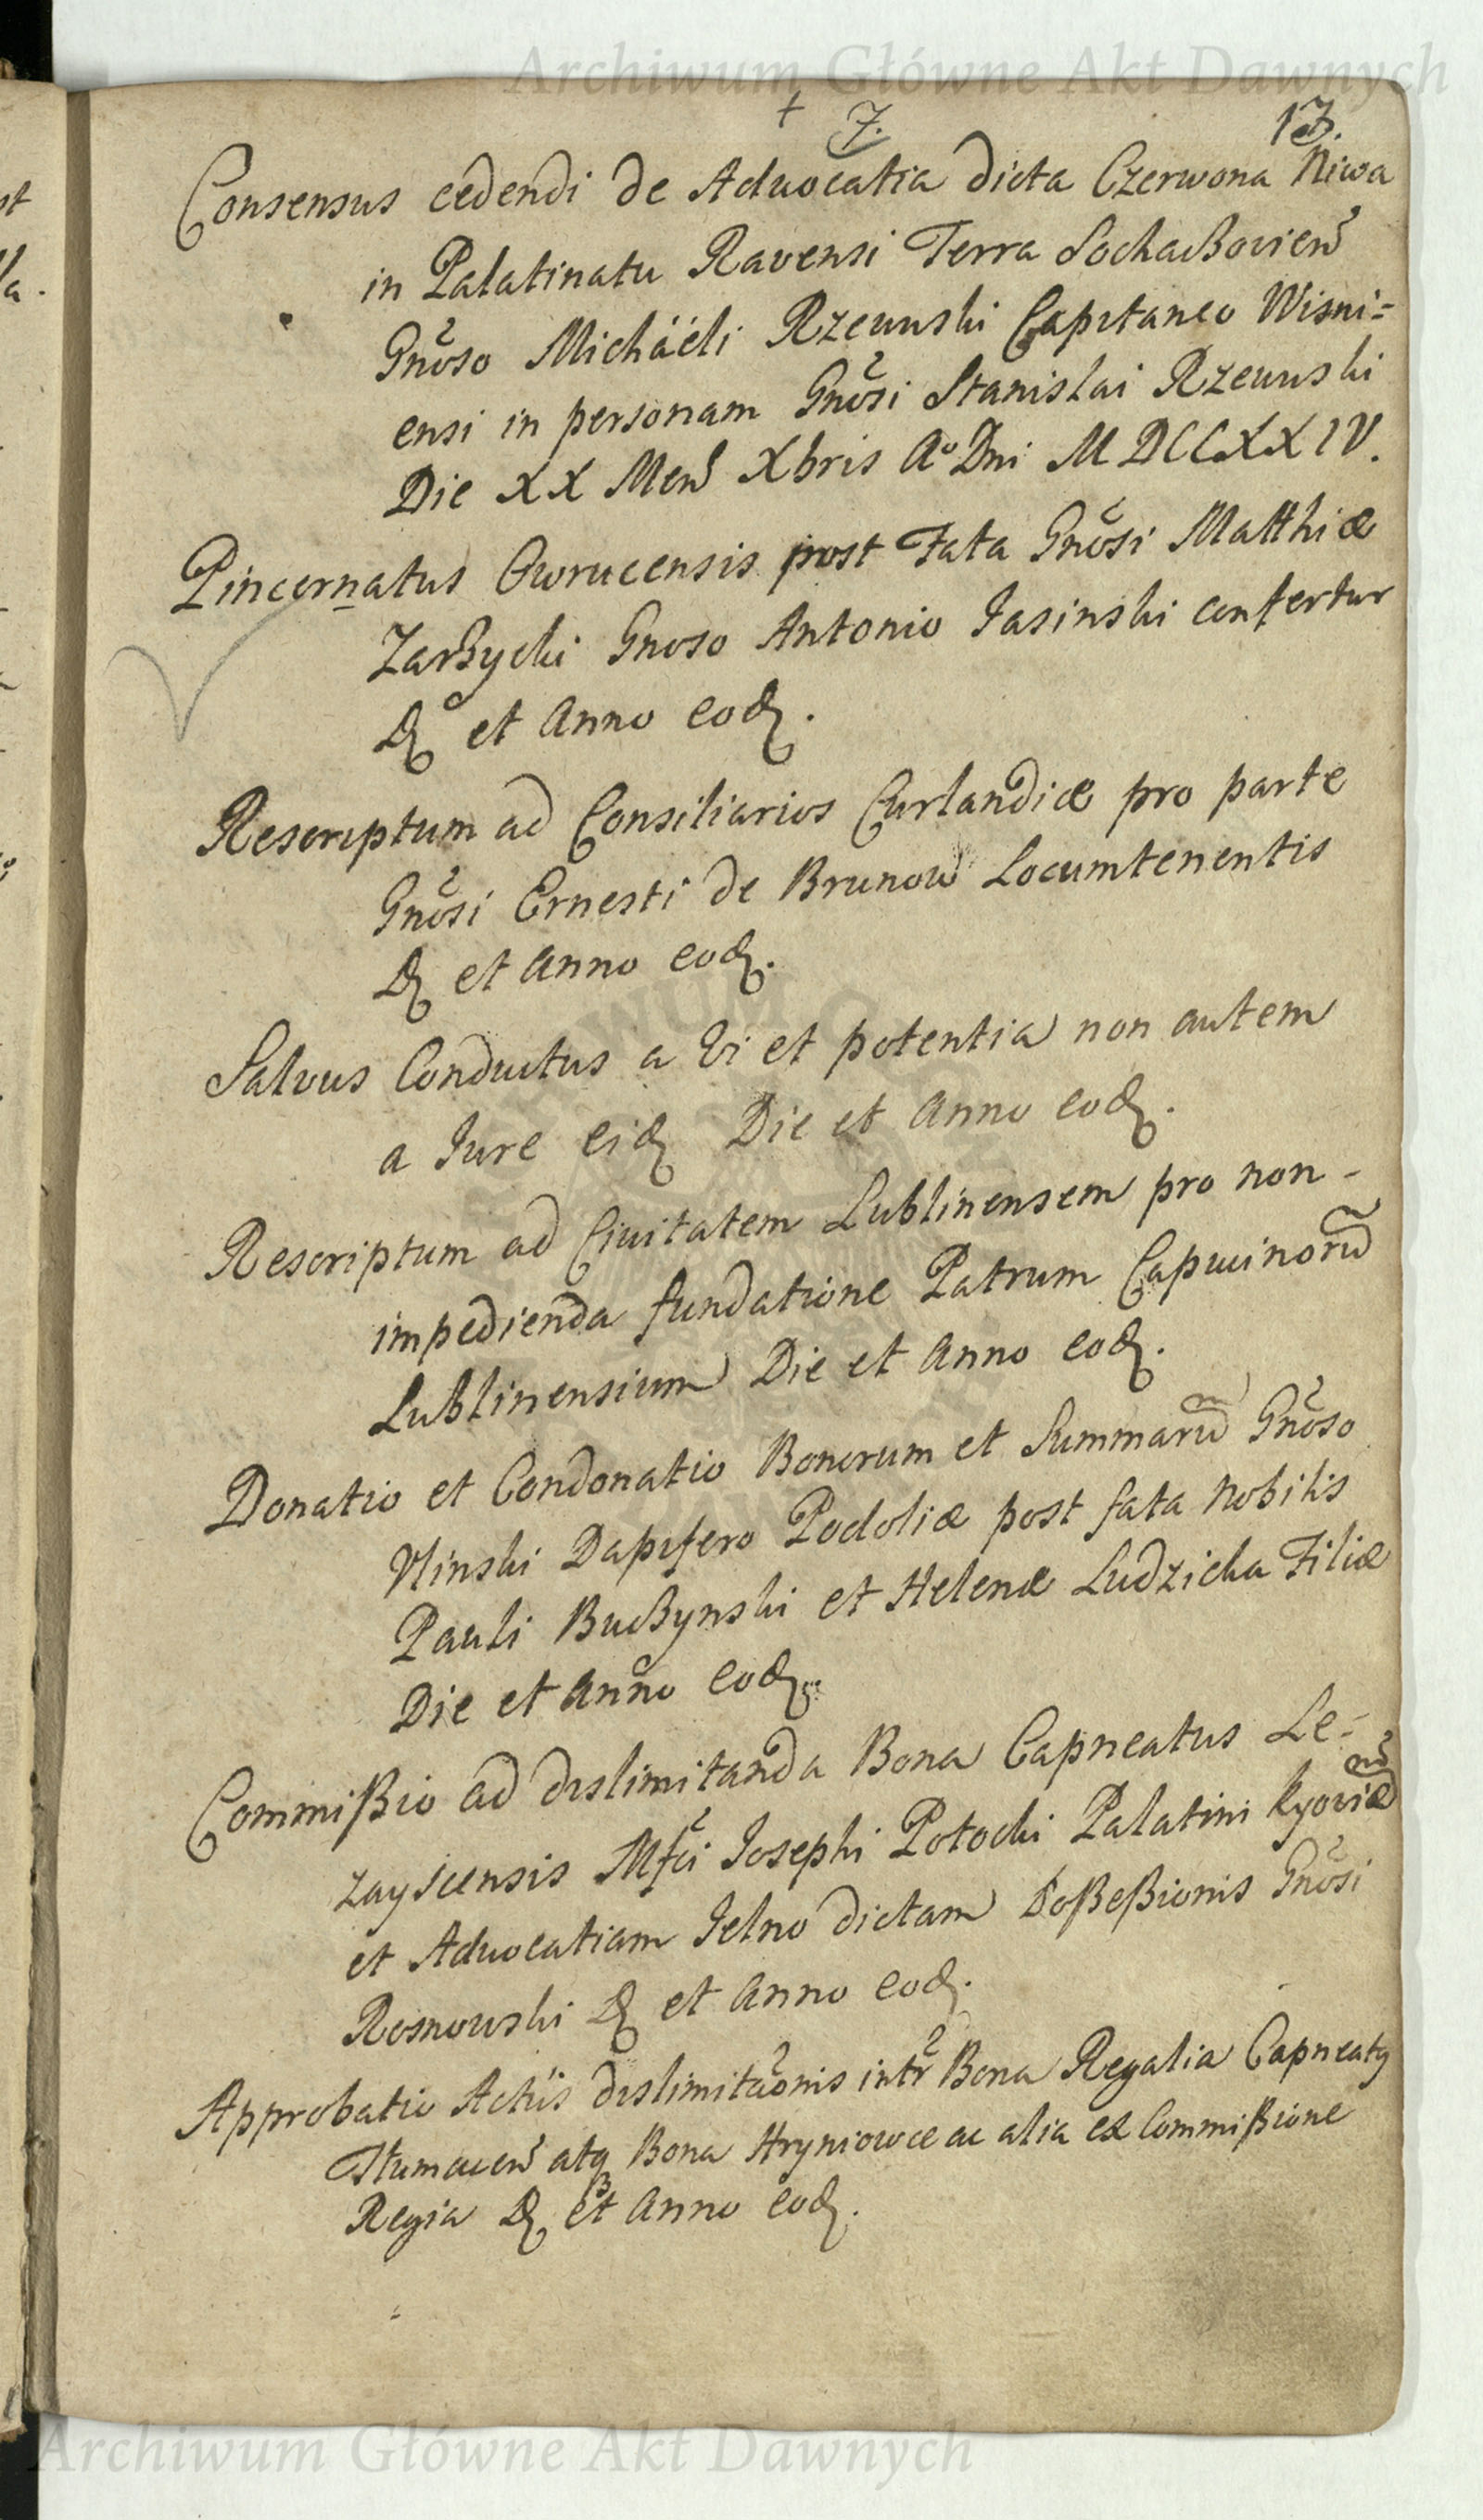 Archiwum Główne Akt Dawnych
+ 7. 13.
Consensus cedendi de Advocatia dicta Czerwona Niwa
in Palatinatu Ravensi Terra Sochaczovien̄
Gnōso Michaëli Rzewuski Capitaneo Wisni=
ensi in personam Gnōsi Stanislai Rzewuski
Die XX Men̄ Xbris Aº Dni MDCCXXIV.
Pincernatus Owrucensis post Fata Gnōsi Matthiæ
Zarzycki Gnoso Antonio Jasinski confertur
D. et Anno eod.
Rescriptum ad Consiliarios Curlandiæ pro parte
Gnōsi Ernesti de Brunow Locumtenentis
D. et Anno eod.
Salvus Conductus a Vi et potentia non autem
a Jure eid. Die et Anno eod.
Rescriptum ad Civitatem Lublinensem pro non-
impedienda fundatione Patrum Capucinorū
Lublinensium Die et Anno eod.
Donatio et Condonatio Bonorum et Summarū Gnōso
Ulinski Dapifero Podoliæ post fata Nobilis
Pauli Buczynski et Helenæ Ludzicka Filiæ
Die et Anno eod.
Commißio ad dislimitanda Bona Capneatus Le=
zayscensis Mfci Josephi Potocki Palatini Kyoviæ
et Advocatiam Jelno dictam Poßeßionis Gnōsi
Rosnowski D. et Anno eod.
Approbatio Actûs dislimitaōnis intr Bona Regalia Capneatq
Tłumacen̄ atq Bona Hryniowce ac alia ex Commißione
Regia D. et Anno eod.
Archiwum Główne Akt Dawnych